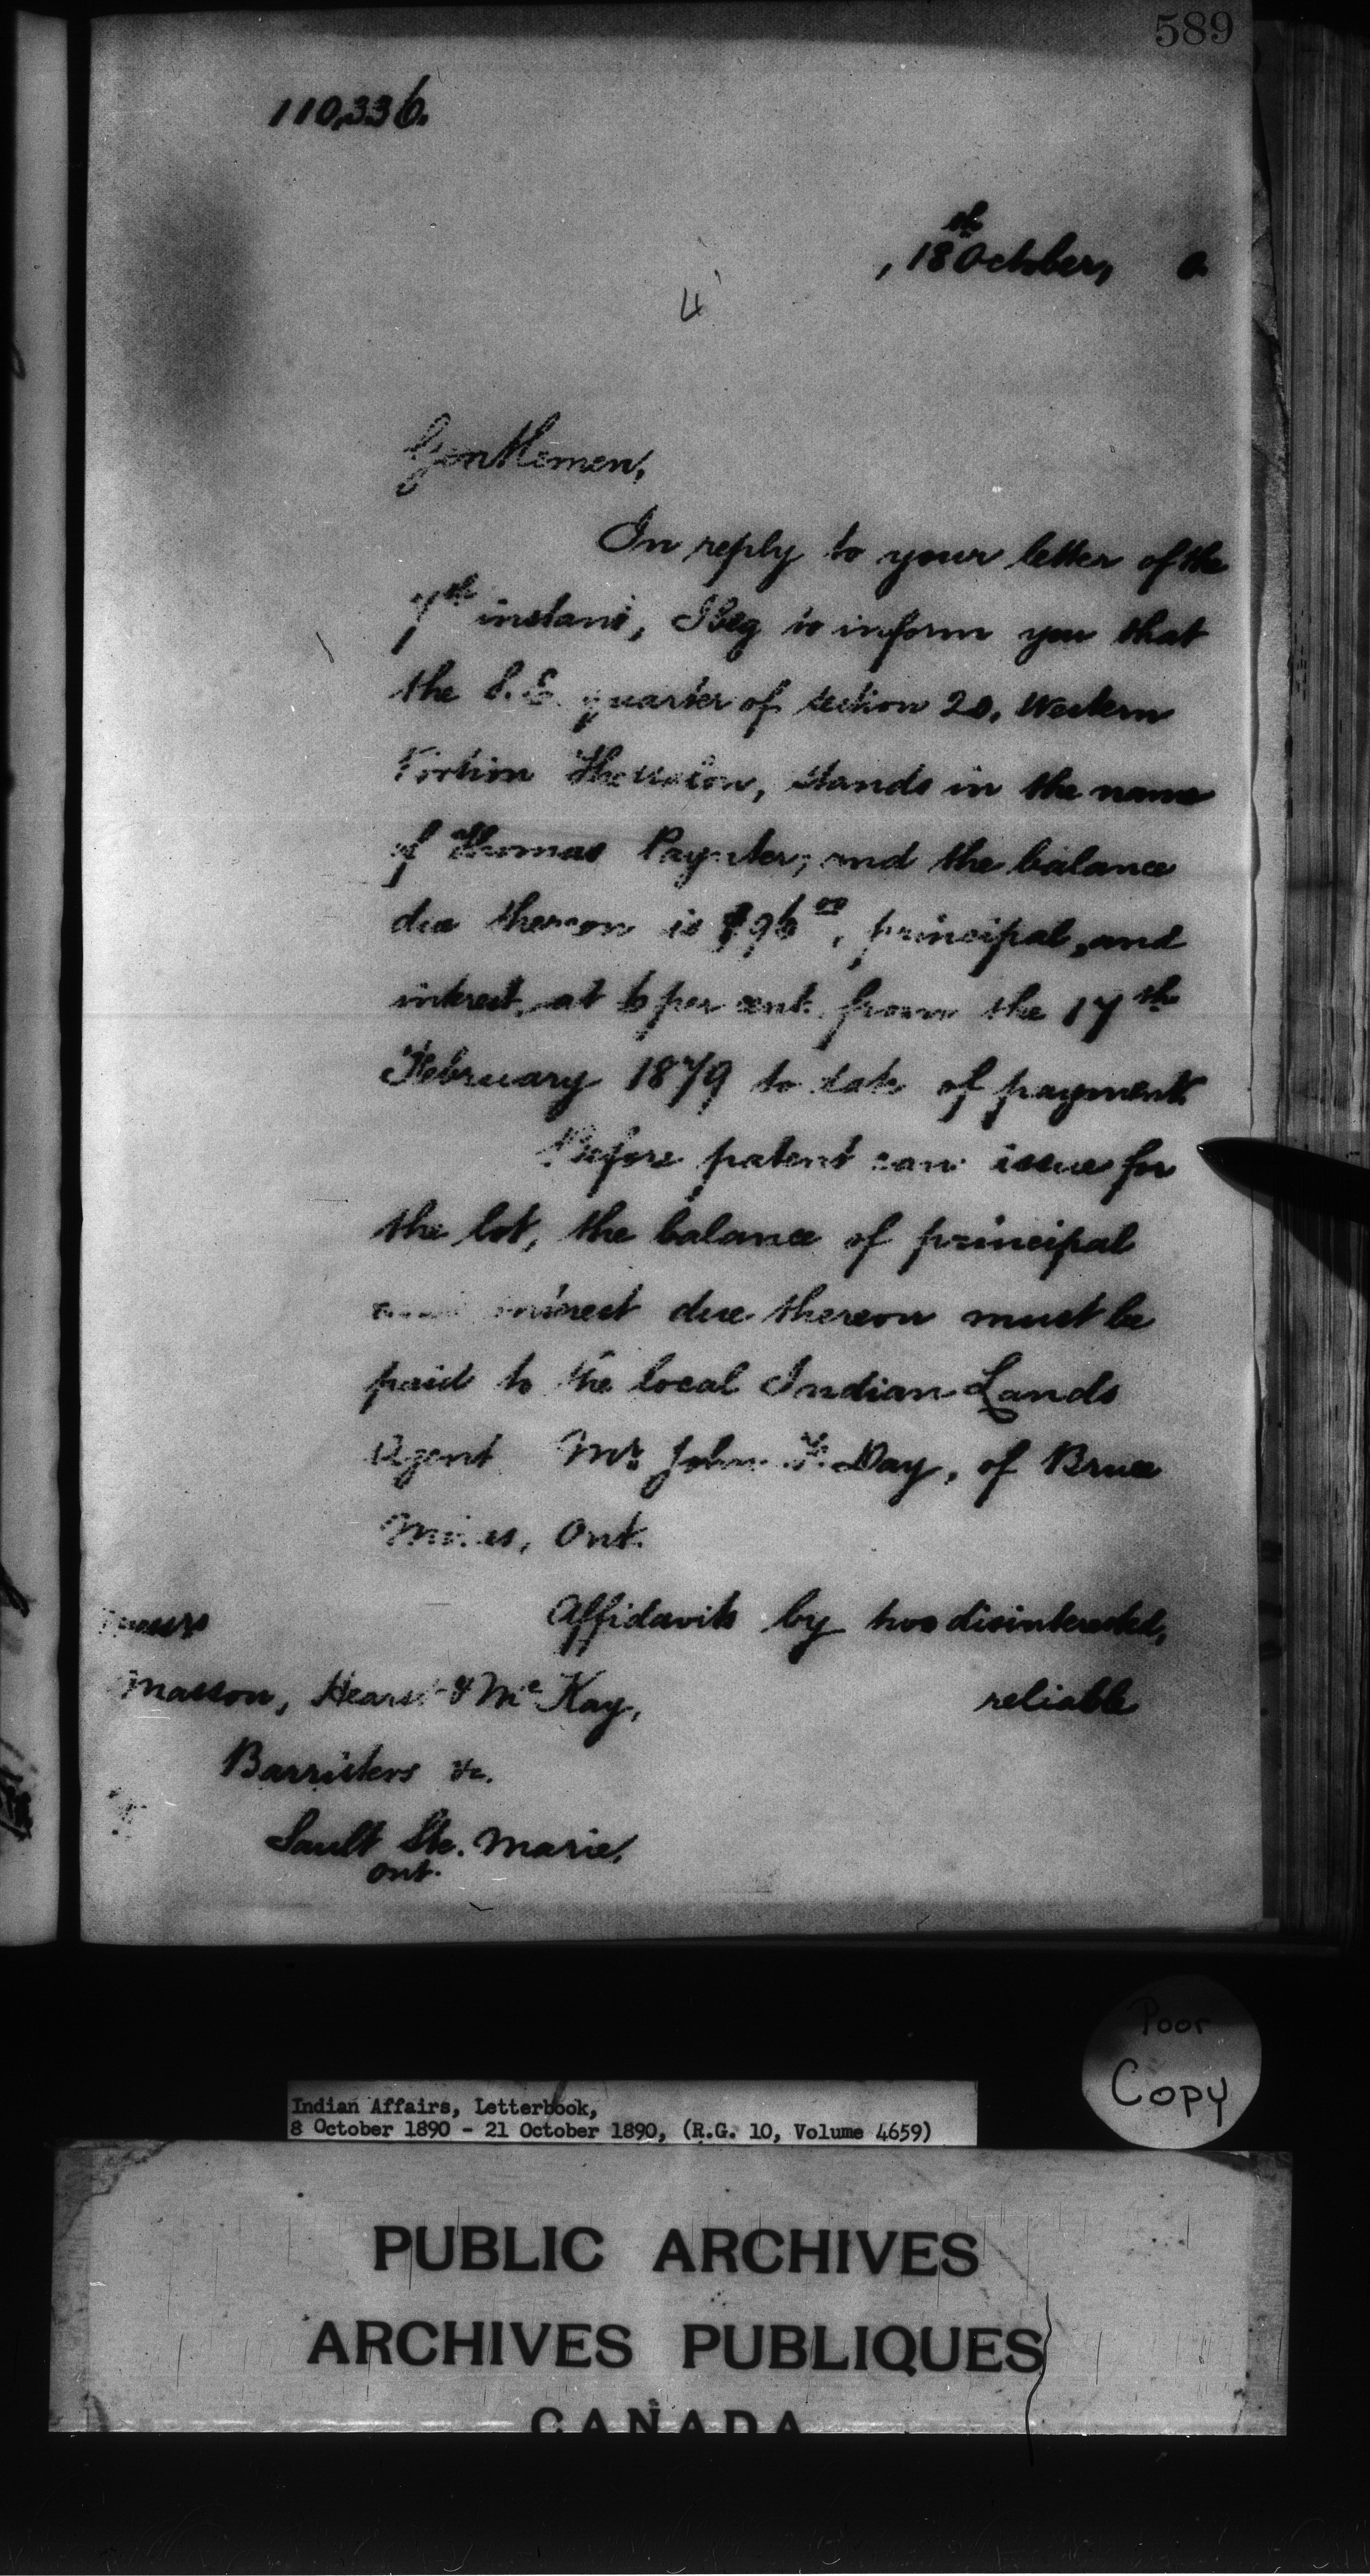 589
110,336.
, 18th October, 0
4
Gentlemen,
In reply to your letter of the
7th instant, I beg to inform you that
the S.E. quarter of section 20, Western
Portion Thessalon, stands in the name
of Thomas Paynter, and the balance
due thereon is $96.00, principal, and
interest, at 6 per cent. from the 17th
February 1879 to date of payment.
Before patent can issue for
the lot, the balance of principal
and interest due thereon must be
paid to the local Indian Lands
Agent Mr. John F. Day, of Bruce
Mines, Ont.
Affidavits by two disinterested,
reliable
Messrs
Masson, Hearst & McKay,
Barristers &c.
Sault Ste. Marie,
Ont.
Poor
Copy
Indian Affairs, Letterbook,
8 October 1890 - 21 October 1890, (R.G. 10, Volume 4659)
PUBLIC ARCHIVES
ARCHIVES PUBLIQUES
CANADA